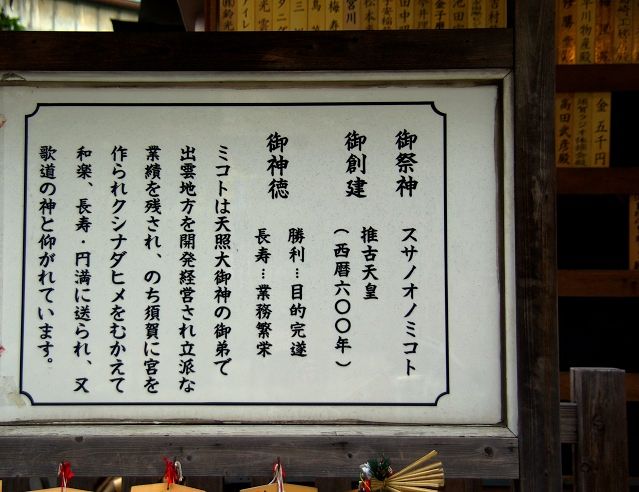 御祭神 スサノオノミコト
御創建 推古天皇
(西暦六〇〇年)
御神徳 勝利…目的完遂
長寿…業務繁栄
ミコトは天照大御神の御弟で
出雲地方を開発経営され立派な
業績を残され、のち須賀に宮を
作られクシナダヒメをむかえて
和楽、長寿・円満に送られ、又
歌道の神と仰がれています。
金五千円
高田武彦殿